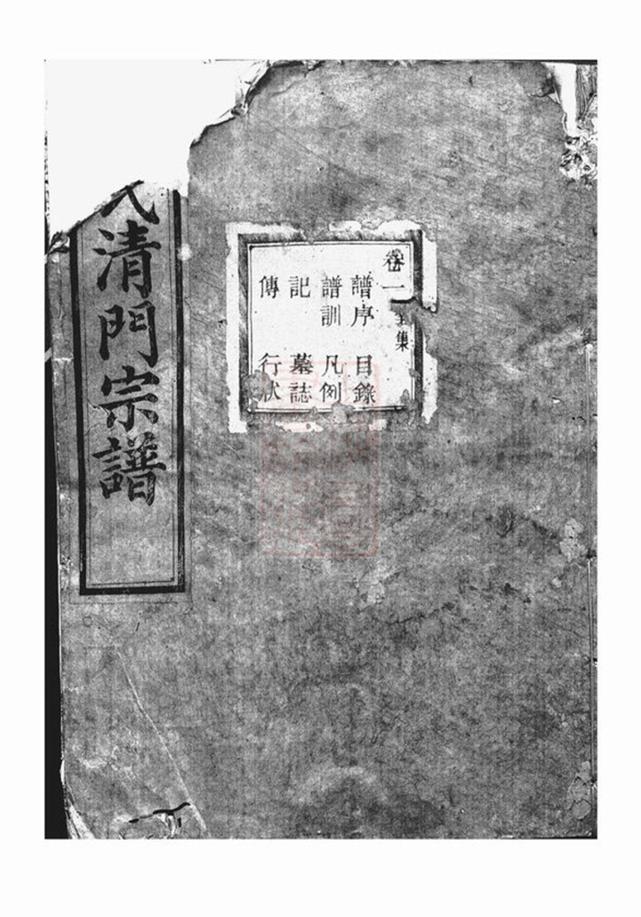 卷一
集
譜序 目錄
譜訓 凡例
記 墓誌
傳 行狀
清門宗譜